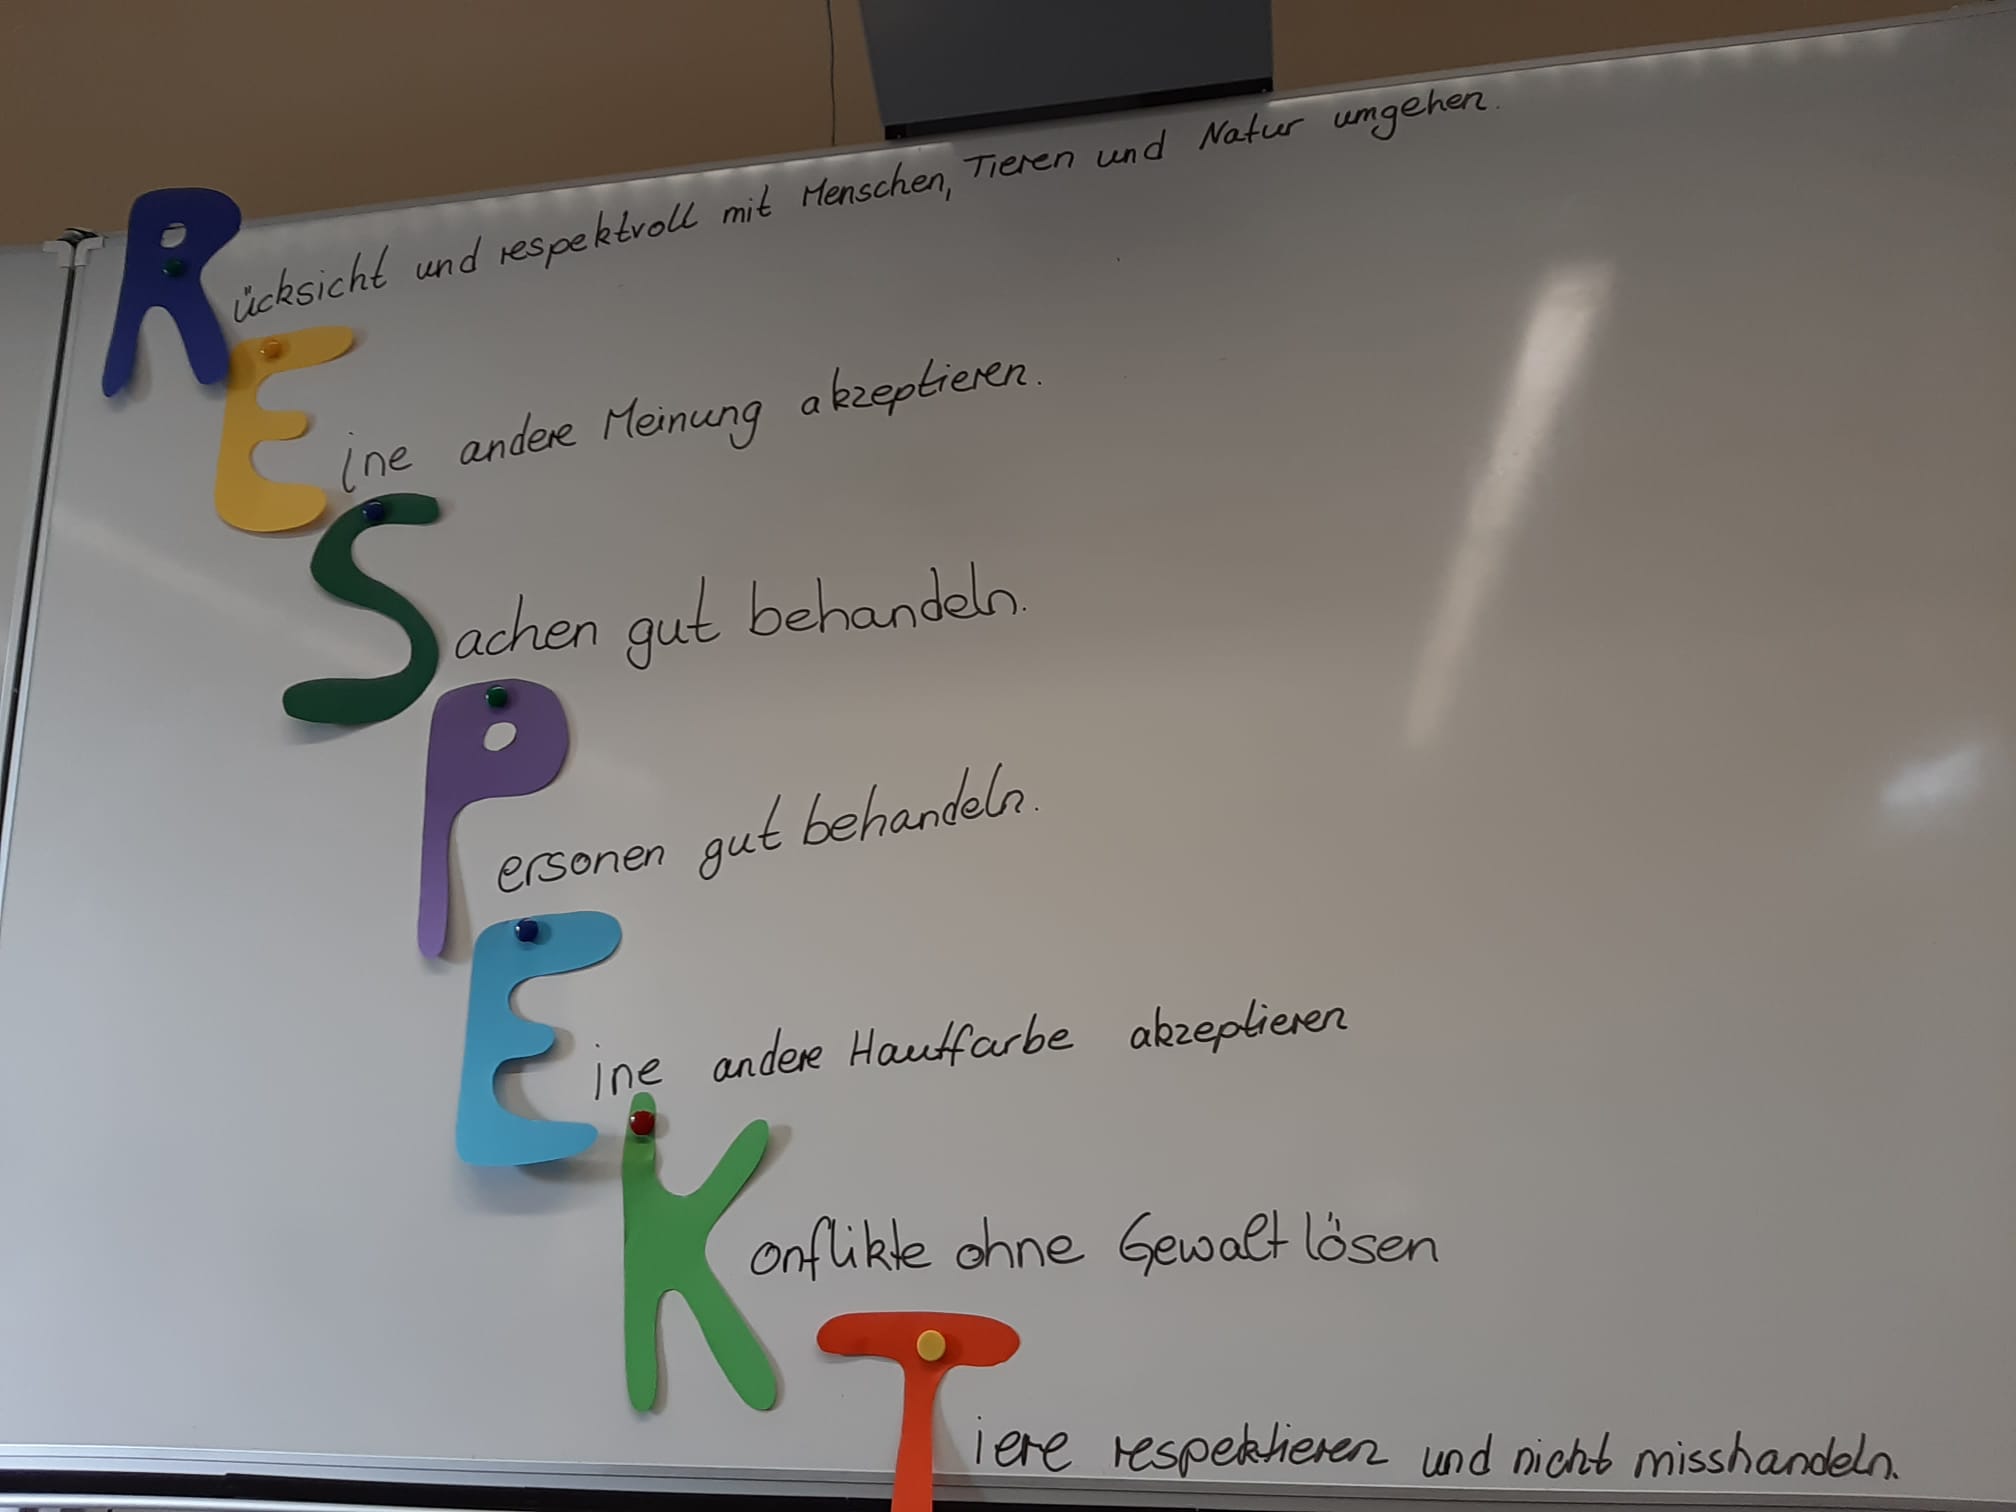 Rücksicht und respektvoll mit Menschen, Tieren und Natur umgehen.
Eine andere Meinung akzeptieren.
Sachen gut behandeln.
Personen gut behandeln.
Eine andere Hautfarbe akzeptieren
Konflikte ohne Gewalt lösen
Tiere respektieren und nicht misshandeln.